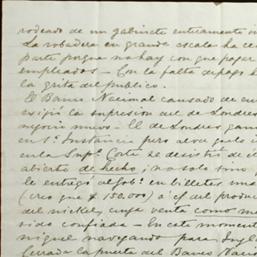 rodeado de un gabinete enteramente
La robadera en grande escala ha
parte porque no hay con que pagar
empleados — Con la falta de pago
la grita del publico.
El Banco Nacional causado de
exijio la supresion del de Londres
negocio nuevo. El de Londres
en 1a. Instancia pero
en la Supa. Corte se decidió de
abierto de hecho, no solo sino
le entregó al Gobo. en billetes
(creo que $ 150.000) a cf. del produc
del nickel, cuya venta como
sido confiada — En este momento
miguel navegando para
Cerrada la puerta del Banco Nacio